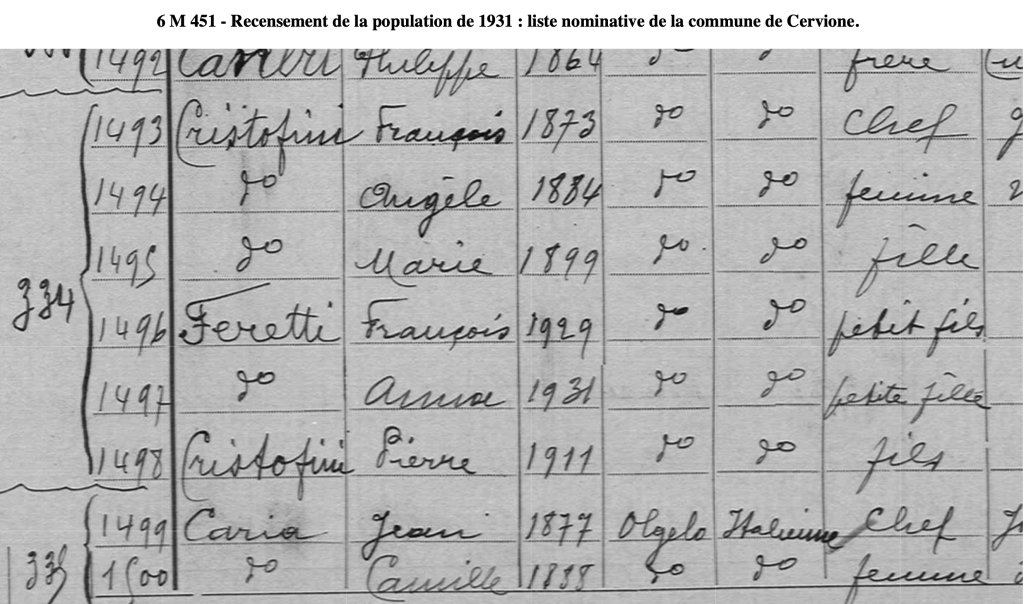 6 M 451 - Recensement de la population de 1931 : liste nominative de la commune de Cervione.
1492 Philippe 1864 do do frère
1493 Cristofini François 1873 do do Chef
1494 do Angèle 1884 do do femme
1495 do Marie 1899 do do fille
334 1496 Feretti François 1929 do do petit fils
1497 do Anna 1931 do do petite fille
1498 Cristofini Pierre 1911 do do fils
1499 Caria Jean 1877 Olgelo Italienne Chef
335 1500 do Camille 1888 do do femme